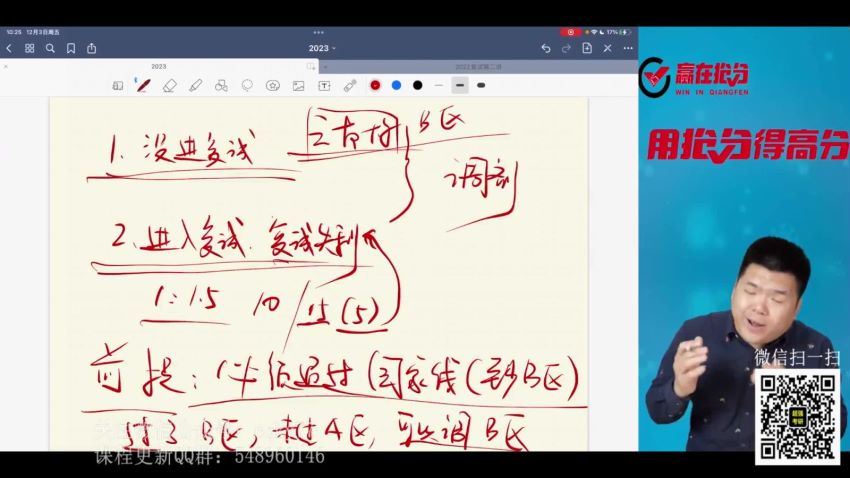 10:25 12月3日周五
17%
2023
2023
2022复试第二讲
赢在抢分
WIN IN QIANGFEN
用抢分得高分
1. 没进复试
B区
调剂
2. 进入复试. 复试失利
1:1.5 10/15 (5)
前提: 必须过 国家线(至少B区)
过了B区, 未过A区, 可以调B区
课程更新QQ群: 548960146
微信扫一扫
超强考研